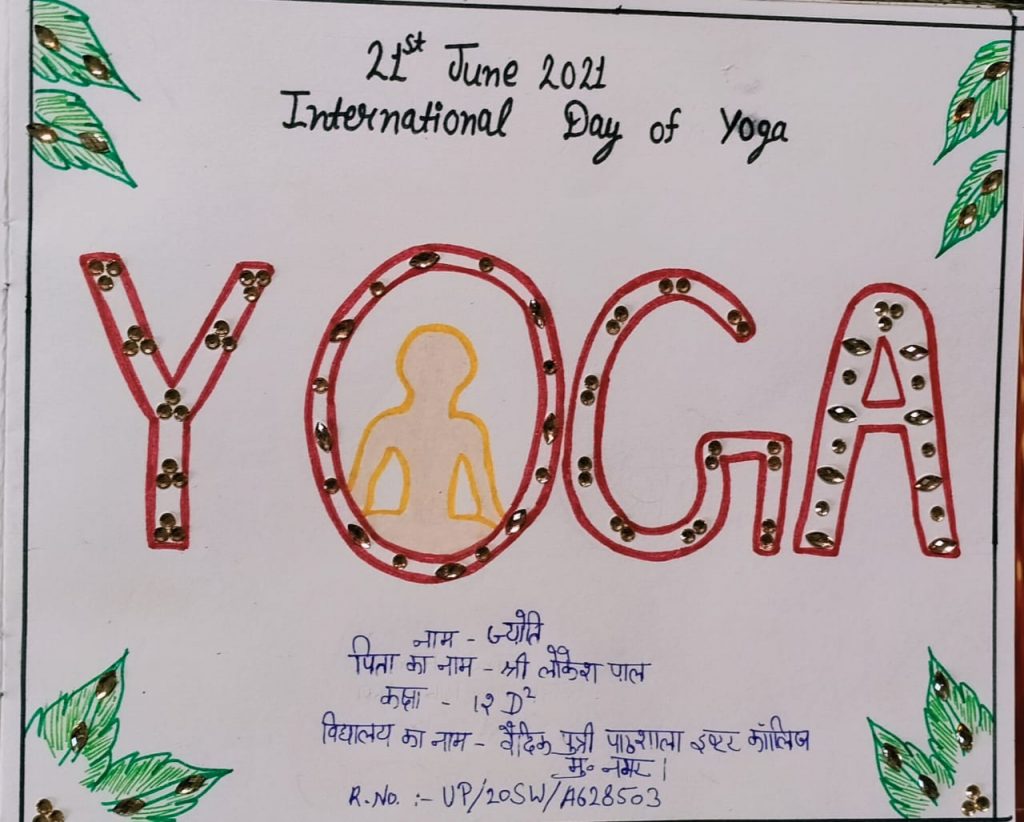 21st June 2021
International Day of Yoga
YOGA
नाम - ज्योति
पिता का नाम - श्री लोकेश पाल
कक्षा - १२ D²
विद्यालय का नाम - वैदिक पुत्री पाठशाला इण्टर कॉलिज
मु० नगर।
R.No. :- UP/20SW/A628503